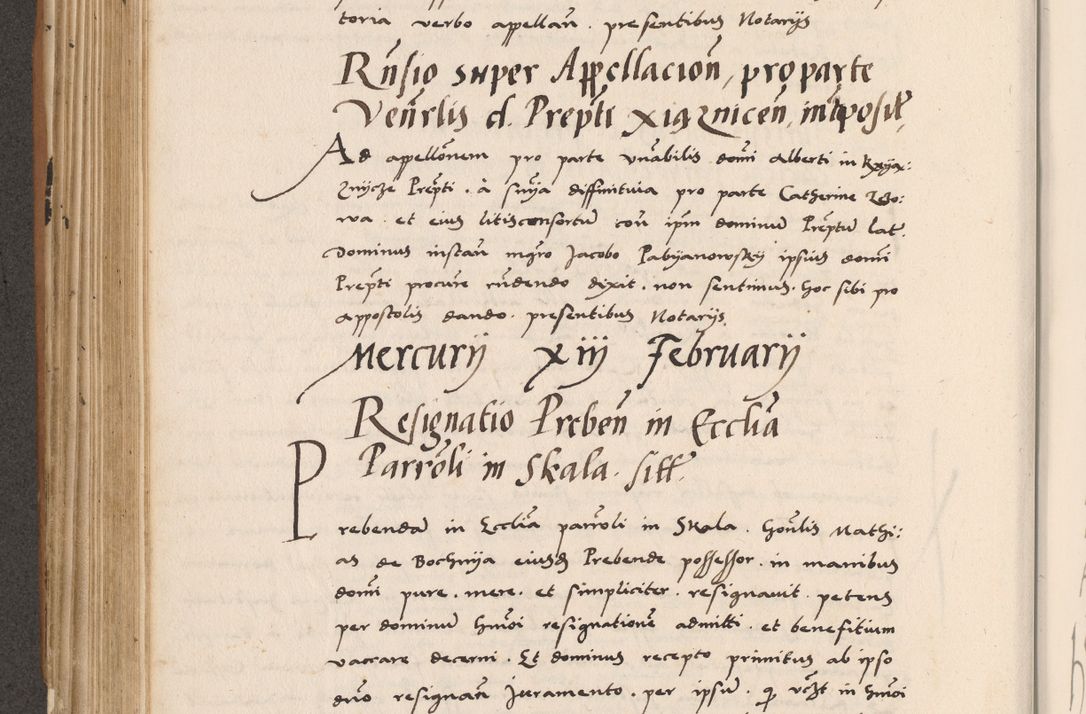 toria verbo appellan̄. presentibus Notarijs
Rn̄sio super Appellacion̄, pro parte
Ven̄rlis d. Prep̄ti Xiąznicen̄, in̄tposit,
Ad appellōnem pro parte vn̄abilis dom̄i Alberti in Kxyąx:
znycże Prep̄ti. à sn̄ija diffinitivia pro parte Catherine
wa. et eius litisconsortū con̄ ip̄m dominum Prep̄tū lat.
Dominus instan̄ mgr̄o Jacobo Pabyanowsky ipsius dom̄i
Prep̄ti procure rn̄dendo dixit. non sentimus. hoc sibi pro
appostolis dando. presentibus Notarijs.
Mercurij xiij Februarij
Resignatio Preben̄ in Eccliā
Parrōli in Skala. sitt.
Prebendā in Eccliā parrōli in Skala. hon̄lis Mathi:
as de Bochnija eiusd Prebende possessor. in manibus
dom̄i pure. mere. et simpliciter. resignavit. petens
per dominū hm̄oi resignationē admitti. et benefitium
vaccare decerni. Et dominus recepto primitus ab ipso
dn̄o resignan̄ Juramento. per ipsū. q̨ vc̄zt in hm̄oi